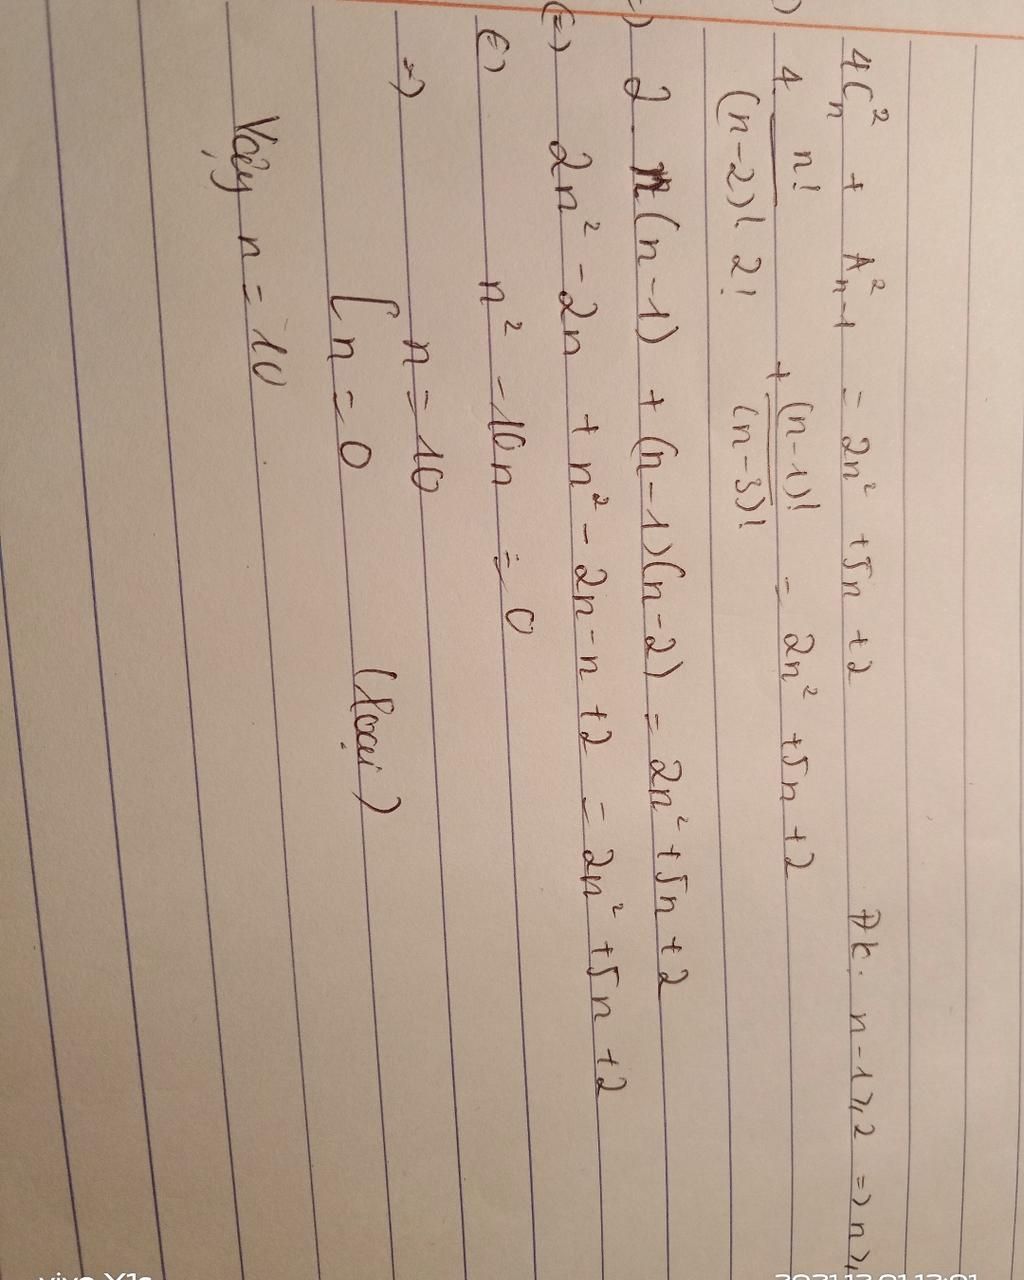 4C²ₙ + A²ₙ₋₁ = 2n² + 5n + 2 Đk: n-1 ≥ 2 => n ≥
4 n!/(n-2)! 2! + (n-1)!/(n-3)! = 2n² + 5n + 2
2 n(n-1) + (n-1)(n-2) = 2n² + 5n + 2
(=) 2n² - 2n + n² - 2n - n + 2 = 2n² + 5n + 2
(=) n² - 10n = 0
=) [ n = 10
n = 0 (loại)
Vậy n = 10
vivo X1s